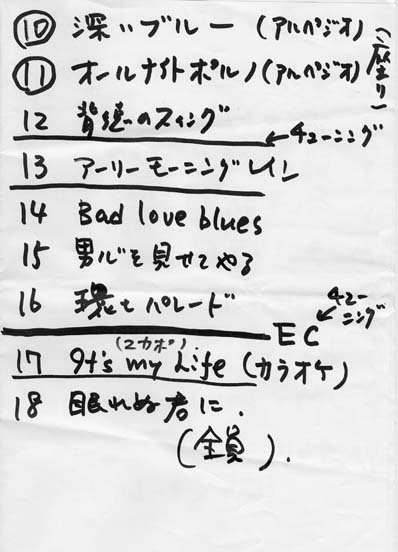 ⑩ 深いブルー (アルペジオ) (座り)
⑪ オールナイトポルノ(アルペジオ)
12 背徳のスイング
←チューニング
13 アーリーモーニングレイン
14 Bad love blues
15 男心を見せてやる
16 環七パレード
←チューニング
EC
17 It's my Life (カラオケ)
(2カポ)
18 眠れぬ者に.
(全員).